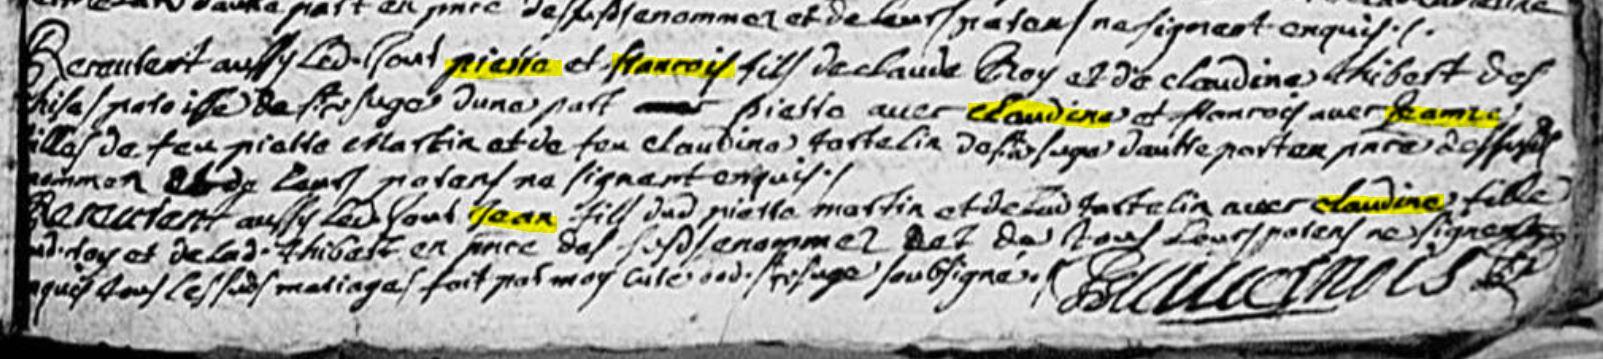 d'aultre part en pnce des susd senommez et de leurs parens ne signant enquis
Receurent aussy led. jour pierre et francois fils de claude Roy et de claudine thibert des
paroisse de st fuge dune part pierre avec claudine et francois avec Jeanne
filles de feu pierre Martin et de feu claudine tartelin de st fuge daultre part en pnce des susd
nommez de leurs parens ne signant enquis
Receurent aussy led jour Jean fils dud pierre martin et de lad tartelin avec claudine fille
dud. roy et de lad. thibert en pnce des susd senommez et de tous leurs parens ne signent
enquis tous les susd mariages fait par moy curé dud. st fuge soubsigné